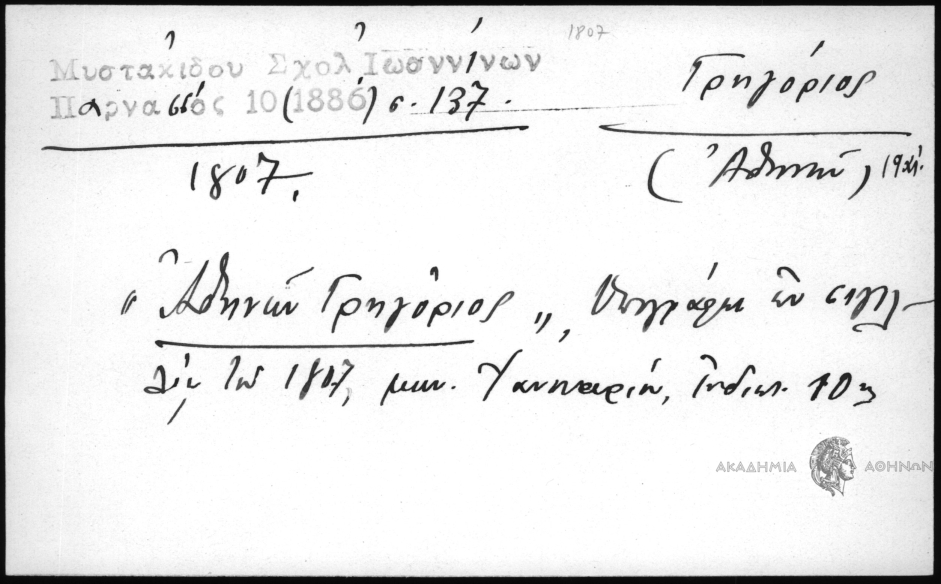 1807
Μυστακίδου Σχολ Ἰωαννίνων
Παρνασσός 10 (1886) σ. 137.
Γρηγόριος
1807.
(Ἀθηνῶν) 19 αἰ.
"Ἀθηνῶν Γρηγόριος", ὑπογράφει ἐν σιγιλ-
λίῳ τοῦ 1807, μην. Ἰαννουαρίου, Ἰνδικτ. 10ης
ΑΚΑΔΗΜΙΑ ΑΘΗΝΩΝ